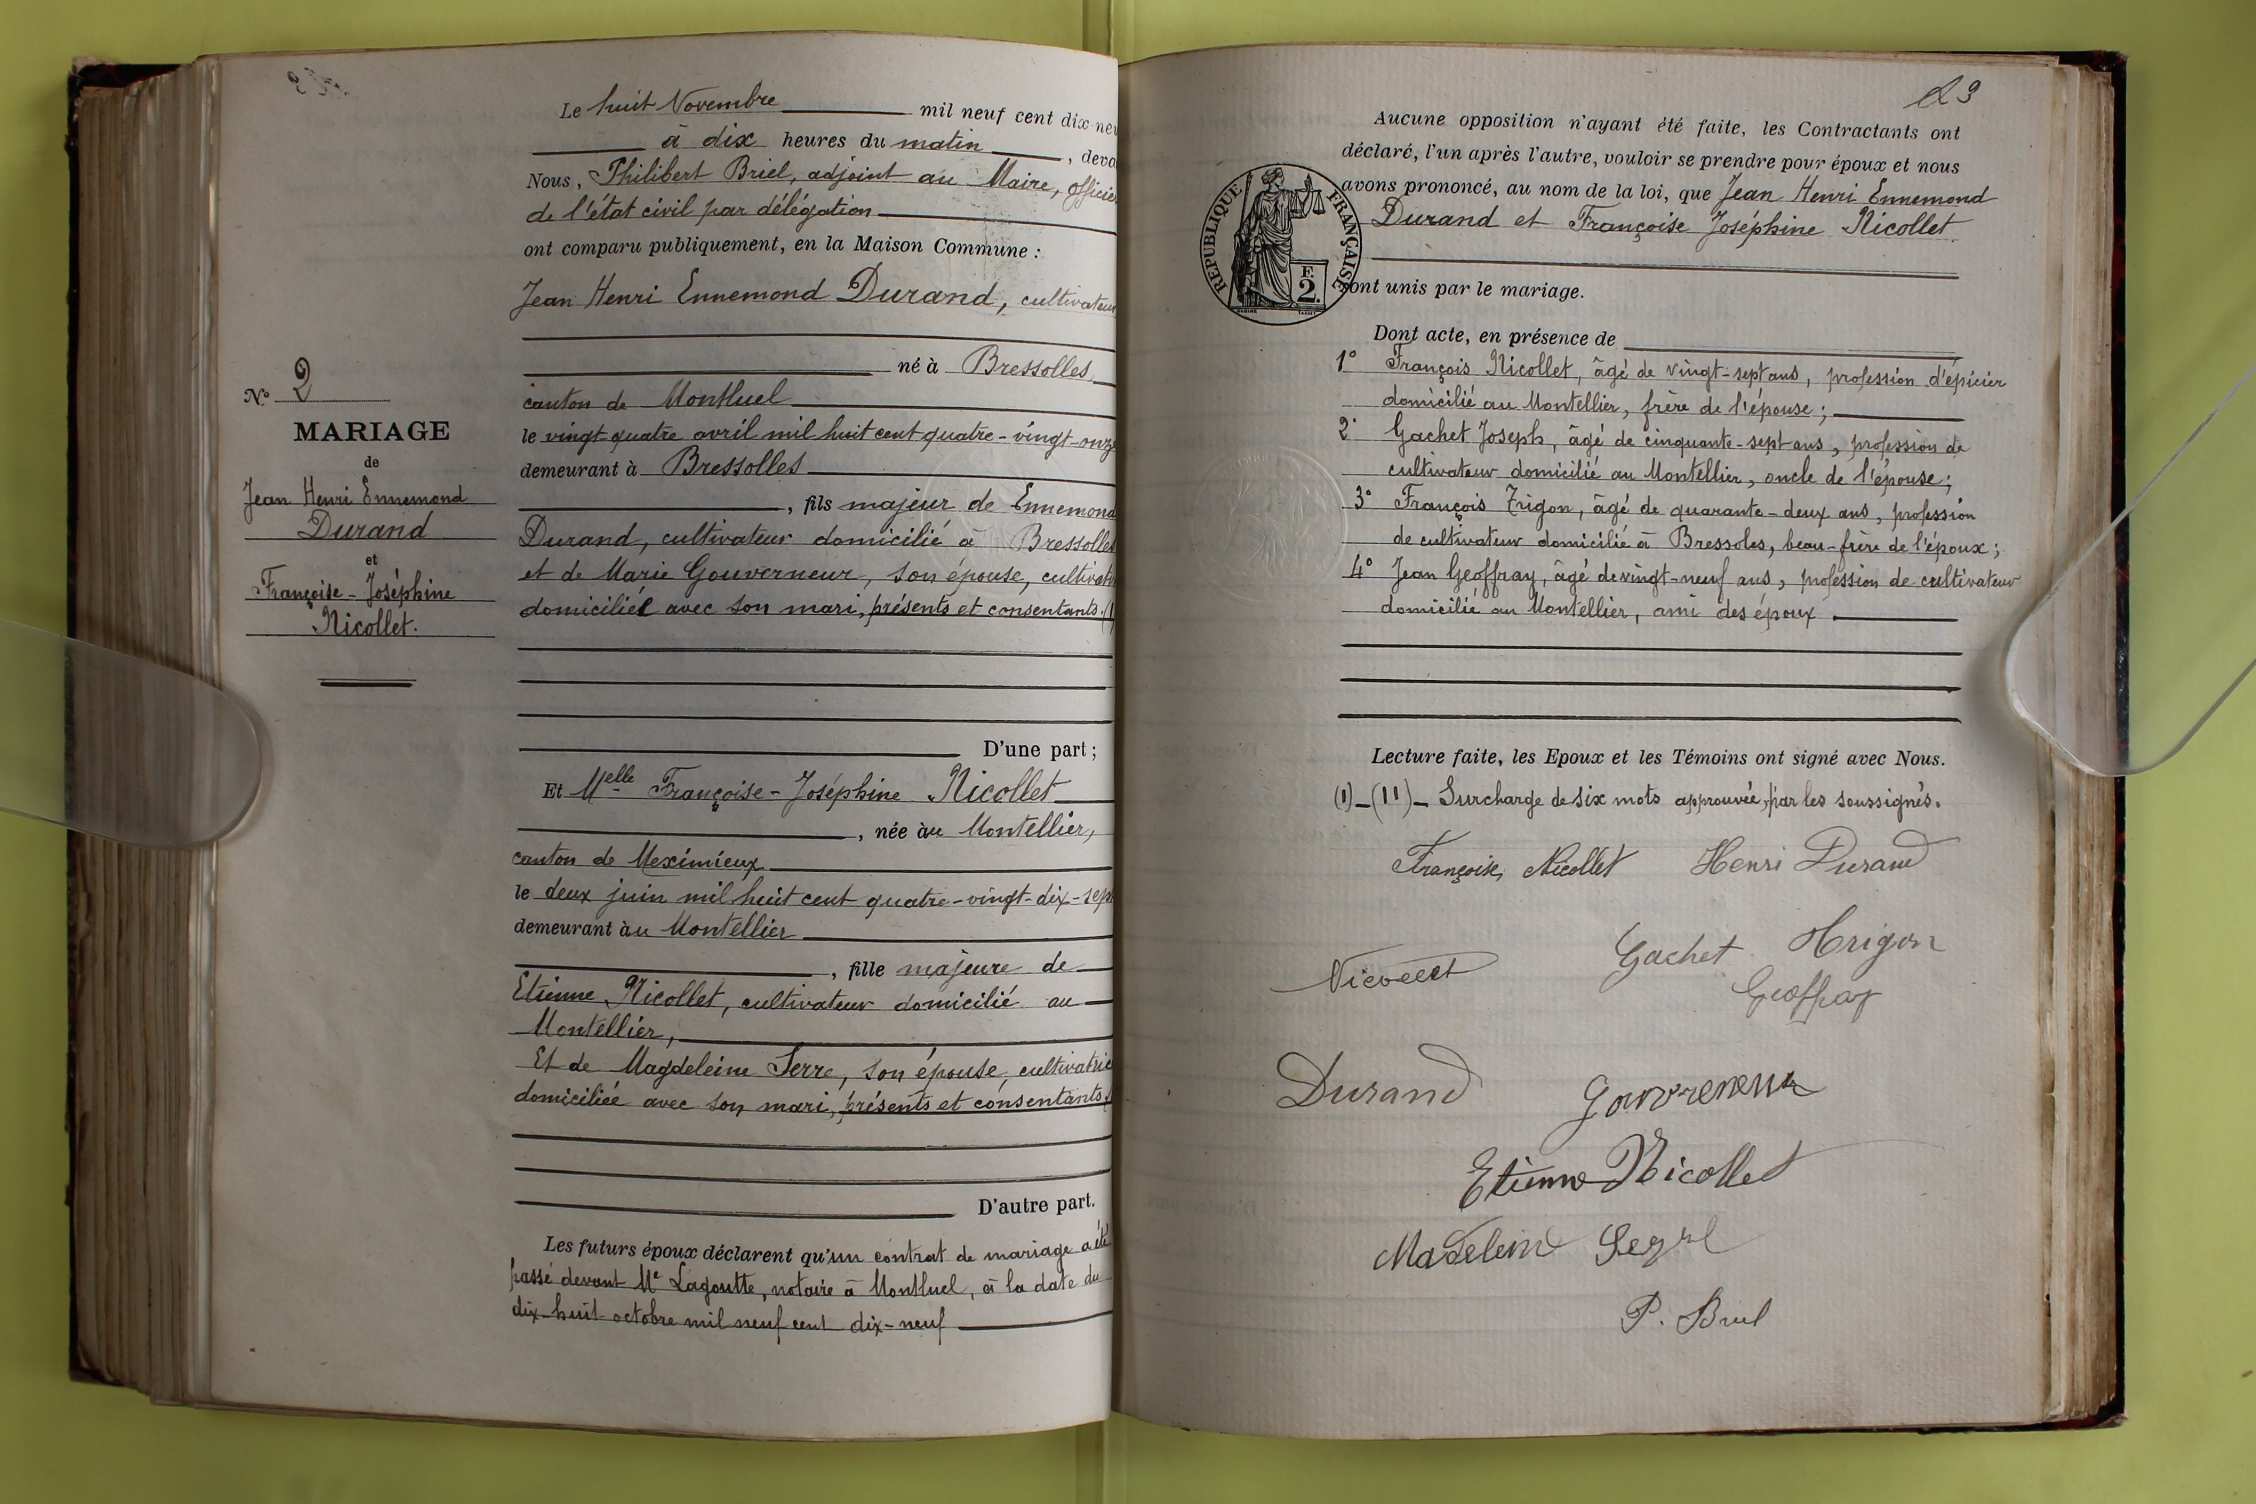 Le huit Novembre mil neuf cent dix neu
à dix heures du matin, deva
Nous, Philibert Briel, adjoint au Maire, officie
de l'état civil par délégation
ont comparu publiquement, en la Maison Commune :
Jean Henri Ennemond Durand, cultivateur
né à Bressolles
canton de Montluel
le vingt quatre avril mil huit cent quatre-vingt-onze
demeurant à Bressolles
, fils majeur de Ennemond
Durand, cultivateur domicilié à Bressolles
et de Marie Gouverneur, son épouse, cultivatr
domiciliée avec son mari, présents et consentants. (1)
D'une part ;
Et Melle Françoise-Joséphine Nicollet
, née àu Montellier,
canton de Meximieux
le deux juin mil huit cent quatre-vingt-dix-sept
demeurant àu Montellier
, fille majeure de
Etienne Nicollet, cultivateur domicilié au
Montellier,
Et de Magdeleine Serre, son épouse, cultivatric
domiciliée avec son mari, présents et consentants (
D'autre part.
Les futurs époux déclarent qu'un contrat de mariage a été
passé devant Me Lagoutte, notaire à Montluel, à la date du
dix-huit octobre mil neuf cent dix-neuf
No 2
MARIAGE
de
Jean Henri Ennemond
Durand
et
Françoise-Joséphine
Nicollet.
Aucune opposition n'ayant été faite, les Contractants ont
déclaré, l'un après l'autre, vouloir se prendre pour époux et nous
avons prononcé, au nom de la loi, que Jean Henri Ennemond
Durand et Françoise Joséphine Nicollet
sont unis par le mariage.
RÉPUBLIQUE FRANÇAISE
F.
2.
Dont acte, en présence de
1° François Nicollet, âgé de vingt-sept ans, profession d'épicier
domicilié au Montellier, frère de l'épouse ;
2° Gachet Joseph, âgé de cinquante-sept ans, profession de
cultivateur domicilié au Montellier, oncle de l'épouse ;
3° François Trigon, âgé de quarante-deux ans, profession
de cultivateur domicilié à Bressoles, beau-frère de l'époux ;
4° Jean Geoffray, âgé de vingt-neuf ans, profession de cultivateur
domicilié au Montellier, ami des époux.
Lecture faite, les Epoux et les Témoins ont signé avec Nous.
(1)-(11)- Surcharge de six mots approuvée, par les soussignés.
Françoise Nicollet Henri Durand
Nicollet Gachet Trigon
Geoffray
Durand Gouvreneur
Etienne Nicollet
Madelein
P. Briel